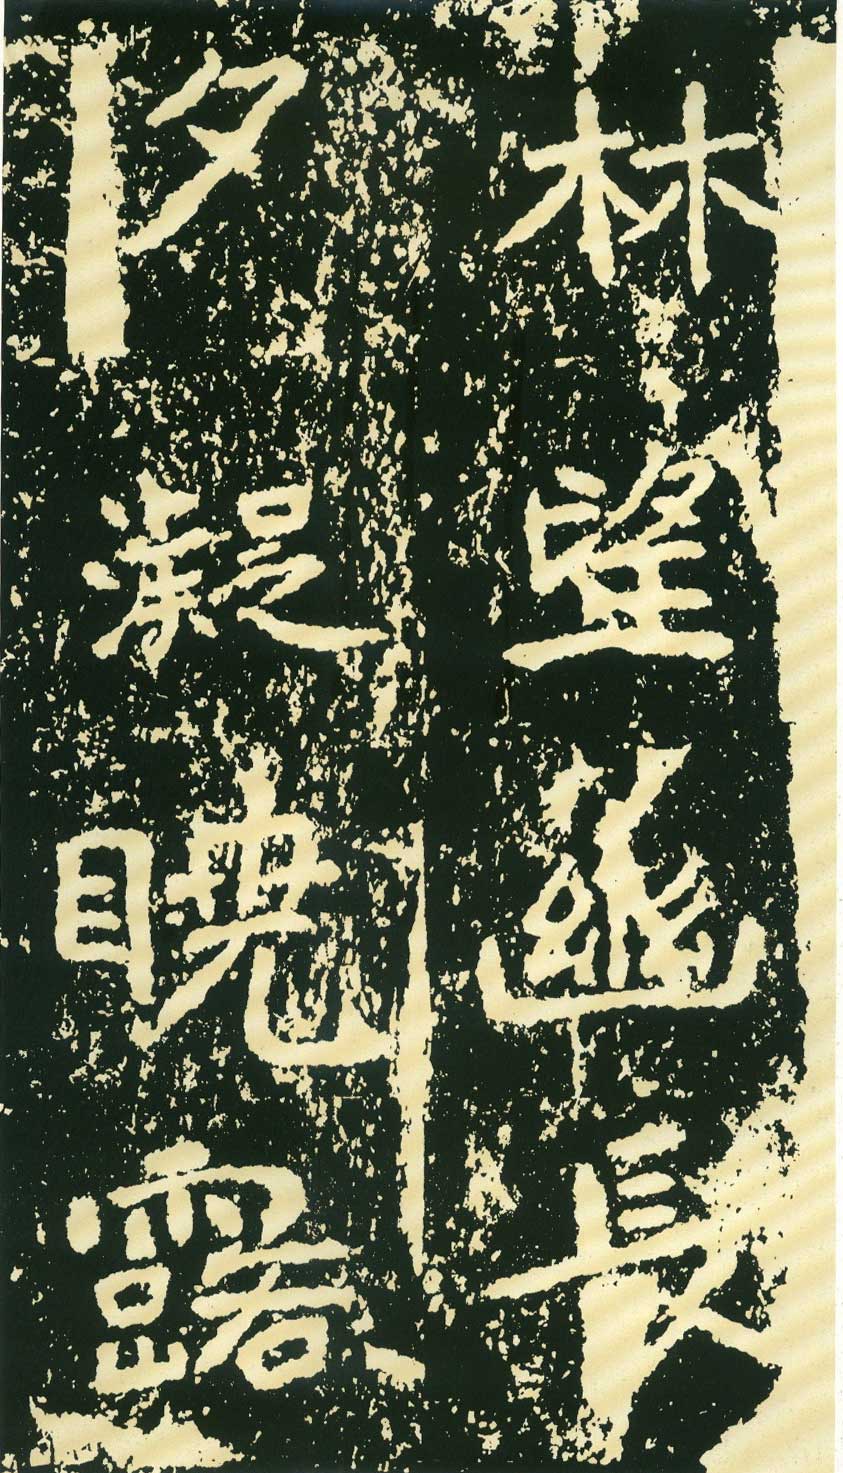 林望幽長
夕凝曉露